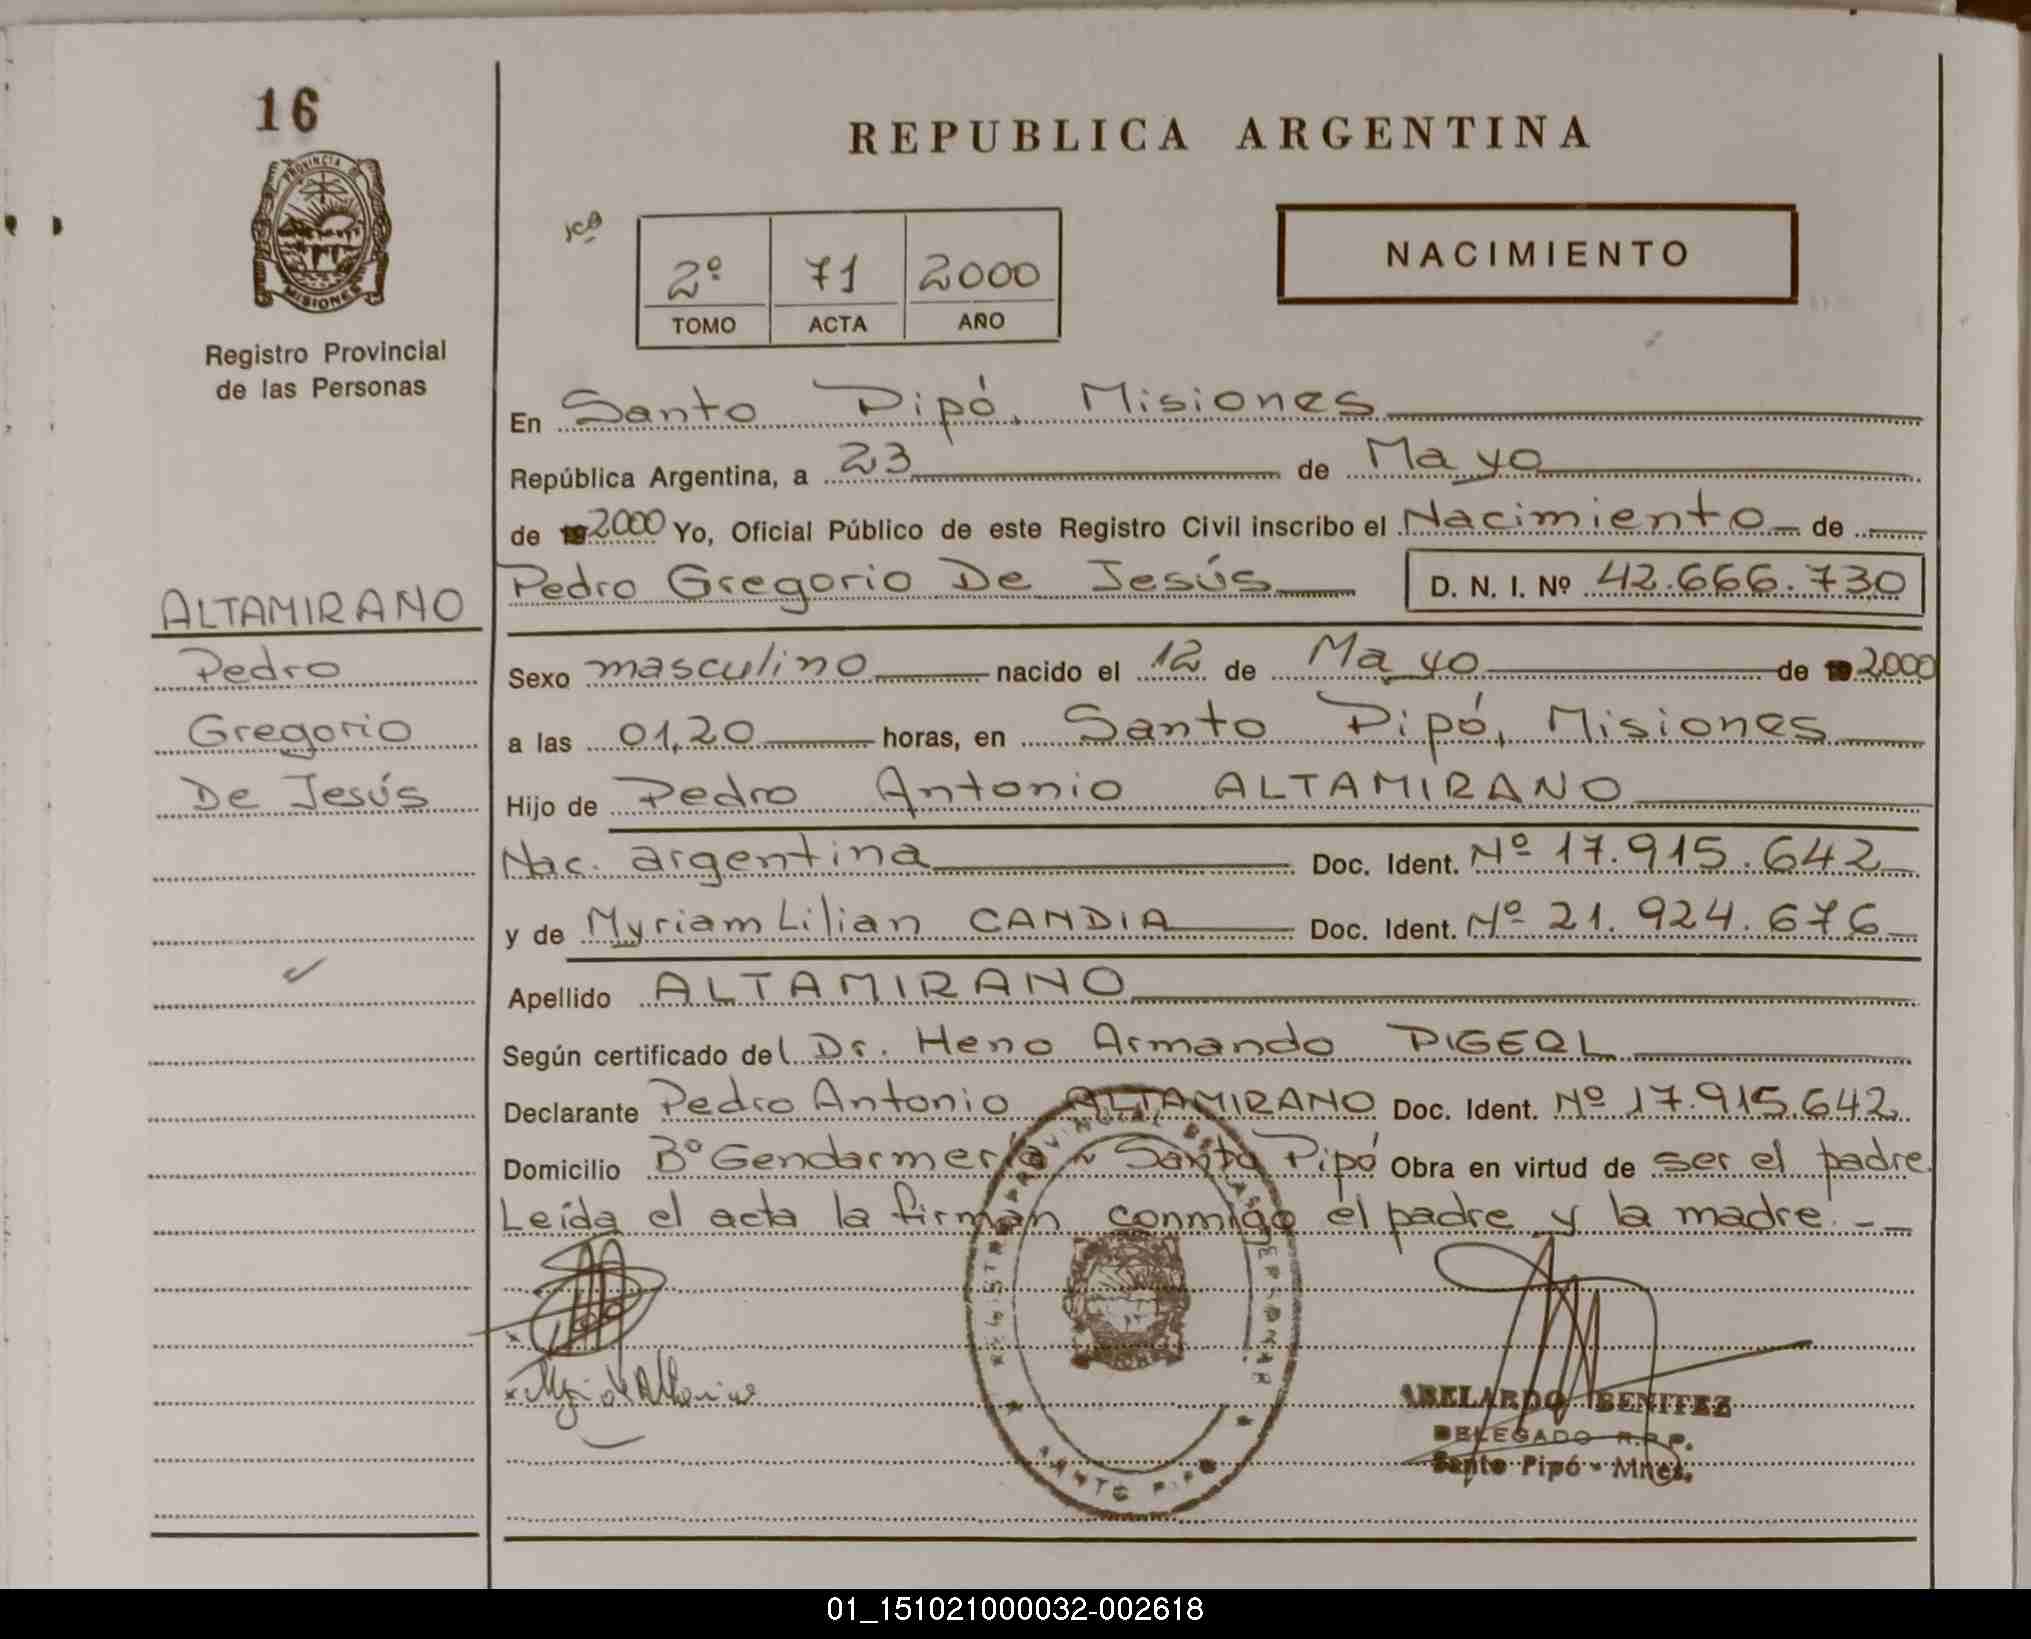 16
PROVINCIA DE
MISIONES
Registro Provincial
de las Personas
ALTAMIRANO
Pedro
Gregorio
De Jesús
REPUBLICA ARGENTINA
2º 71 2000
TOMO ACTA AÑO
NACIMIENTO
En Santo Pipó, Misiones
República Argentina, a 23 de Mayo
de 19 2000 Yo, Oficial Público de este Registro Civil inscribo el Nacimiento de
Pedro Gregorio De Jesús D. N. I. Nº 42.666.730
Sexo masculino nacido el 12 de Mayo de 19 2000
a las 01,20 horas, en Santo Pipó, Misiones
Hijo de Pedro Antonio ALTAMIRANO
Nac. argentina Doc. Ident. Nº 17.915.642
y de Myriam Lilian CANDIA Doc. Ident. Nº 21.924.676
Apellido ALTAMIRANO
Según certificado del Dr. Heno Armando
Declarante Pedro Antonio ALTAMIRANO Doc. Ident. Nº 17.915.642
Domicilio Bº Gendarmería - Santo Pipó Obra en virtud de ser el padre.
Leída el acta la firman conmigo el padre y la madre. - -
REGISTRO PROVINCIAL DE LAS PERSONAS
SANTO PIPO
ABELARDO BENITEZ
DELEGADO R.P.P.
Santo Pipó - Mnes.
01_151021000032-002618